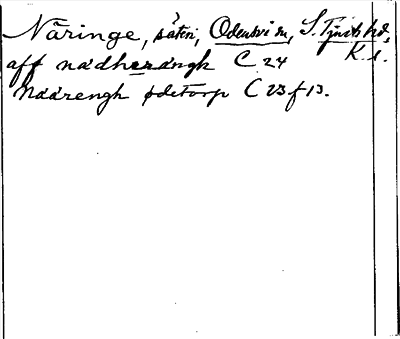 Näringe, säteri, Odensvi sn, S. Tjust hd,
K. l.
aff nadherængh C 24
Naarengh ødetorp C 23 f 13.